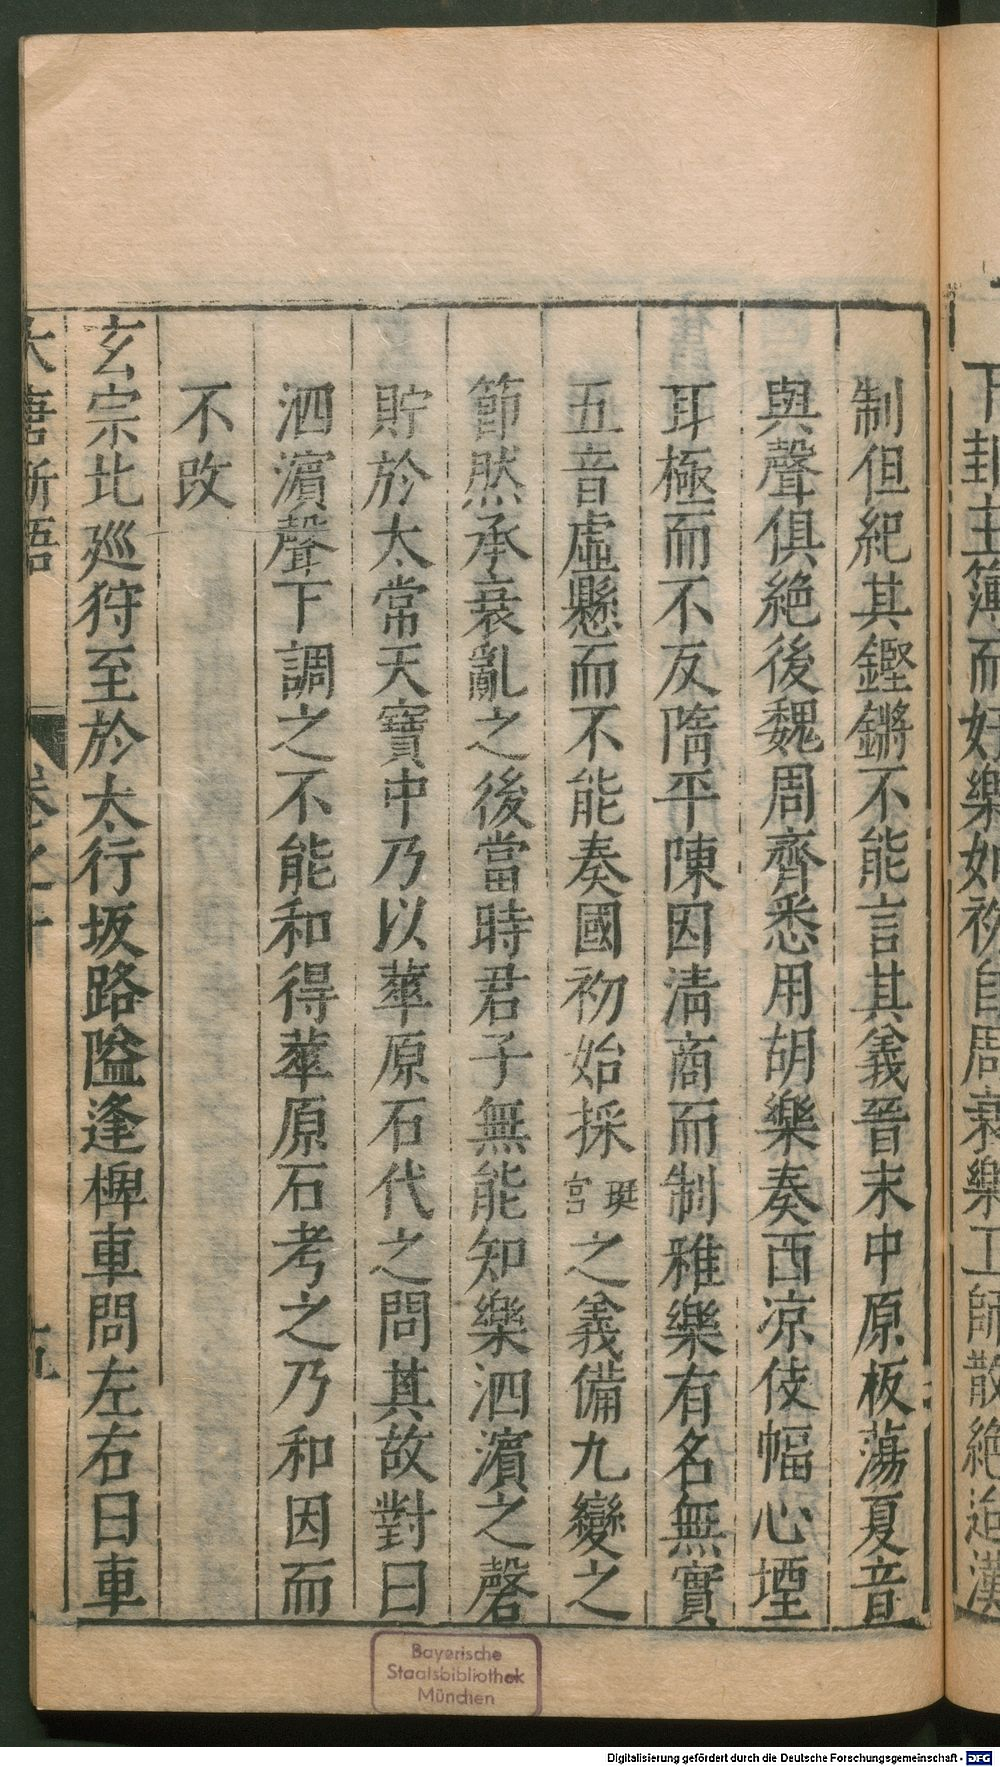 下邽主簿而好樂如初自周衰樂工師散絕迨漢
制但紀其鏗鏘不能言其義晉末中原板蕩夏音
與聲俱絶後魏周齊悉用胡樂奏西凉伎幅心堙
耳極而不反隋平陳因清商而制雅樂有名無實
五音虛懸而不能奏國初始採珽宮之義備九變之
節然承衰亂之後當時君子無能知樂泗濵之磬
貯於太常天寶中乃以華原石代之問其故對曰
泗濵聲下調之不能和得華原石考之乃和因而
不改
玄宗北廵狩至於太行坂路隘逢椑車問左右曰車
大唐新語 卷之十
Bayerische
Staatsbibliothek
München
Digitalisierung gefördert durch die Deutsche Forschungsgemeinschaft - DFG